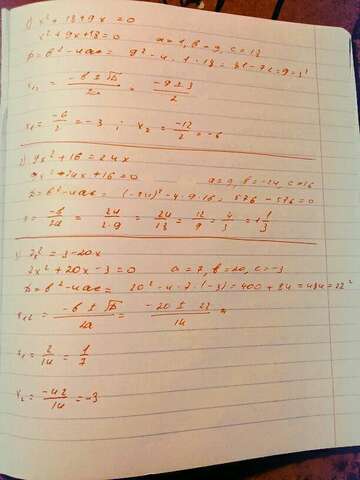 1) x² + 18 + 9x = 0
x² + 9x + 18 = 0 a = 1, b = 9, c = 18
D = b² - 4ac = 9² - 4 · 1 · 18 = 81 - 72 = 9 = 3²
x₁,₂ = (-b ± √D)/2a = (-9 ± 3)/2
x₁ = -6/2 = -3 ; x₂ = -12/2 = -6
2) 9x² + 16 = 24x
9x² - 24x + 16 = 0 a = 9, b = -24, c = 16
D = b² - 4ac = (-24)² - 4 · 9 · 16 = 576 - 576 = 0
x = -b/2a = 24/2·9 = 24/18 = 12/9 = 4/3 = 1 1/3
3) 7x² = 3 - 20x
7x² + 20x - 3 = 0 a = 7, b = 20, c = -3
D = b² - 4ac = 20² - 4 · 7 · (-3) = 400 + 84 = 484 = 22²
x₁,₂ = (-b ± √D)/2a = (-20 ± 22)/14 =
x₁ = 2/14 = 1/7
x₂ = -42/14 = -3